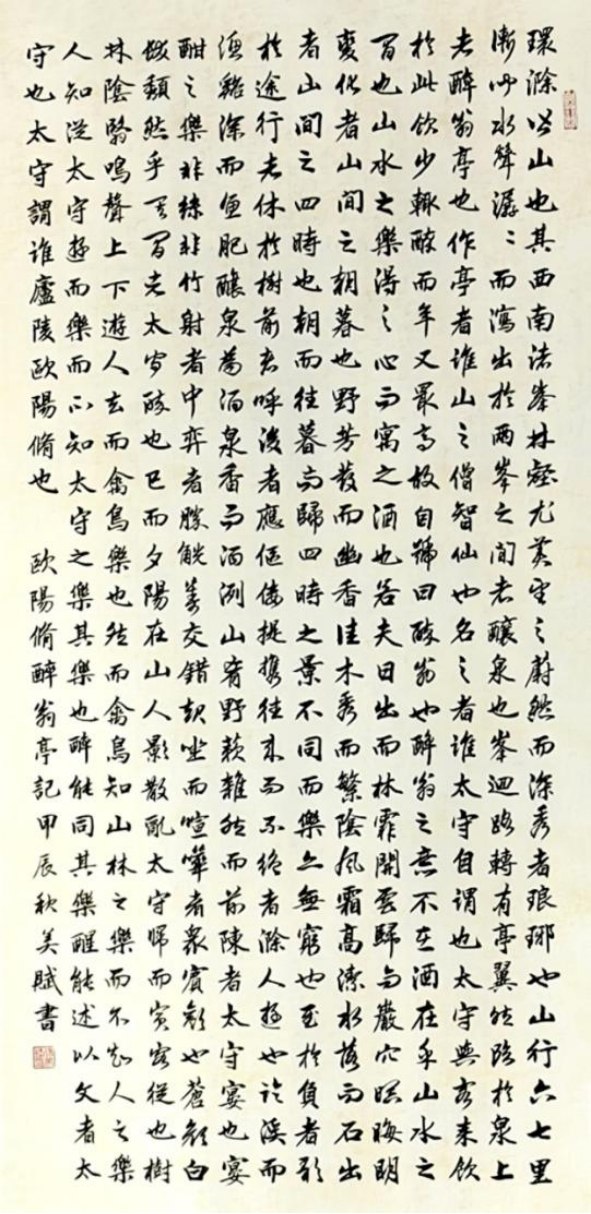 環滁皆山也其西南諸峯林壑尤美望之蔚然而深秀者琅琊也山行六七里
漸聞水聲潺〻而瀉出於兩峯之間者釀泉也峯迴路轉有亭翼然臨於泉上
者醉翁亭也作亭者誰山之僧智仙也名之者誰太守自謂也太守與客來飲
於此飲少輒醉而年又最高故自號曰醉翁也醉翁之意不在酒在乎山水之
間也山水之樂得之心而寓之酒也若夫日出而林霏開雲歸而巖穴暝晦明
變化者山間之朝暮也野芳發而幽香佳木秀而繁陰風霜高潔水落而石出
者山間之四時也朝而往暮而歸四時之景不同而樂亦無窮也至於負者歌
於途行者休於樹前者呼後者應傴僂提攜往來而不絕者滁人遊也臨溪而
漁谿深而魚肥釀泉為酒泉香而酒洌山肴野蔌雜然而前陳者太守宴也宴
酣之樂非絲非竹射者中弈者勝觥籌交錯起坐而喧嘩者衆賓歡也蒼顏白
髮頹然乎其間者太守醉也已而夕陽在山人影散亂太守歸而賓客從也樹
林陰翳鳴聲上下遊人去而禽鳥樂也然而禽鳥知山林之樂而不知人之樂
人知從太守遊而樂而不知太守之樂其樂也醉能同其樂醒能述以文者太
守也太守謂誰廬陵歐陽脩也 歐陽脩醉翁亭記甲辰秋美賦書